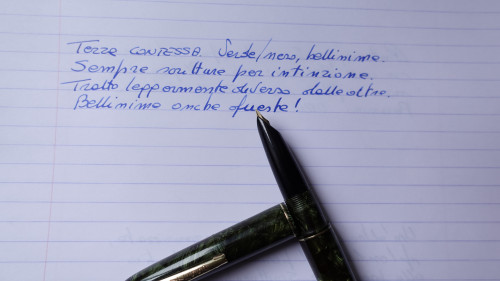 Terza CONFESSA. Verde/nero, bellissima.
Sempre scritture per intinzione.
Tratto leggermente diverso dalle altre.
Bellissima anche questa!